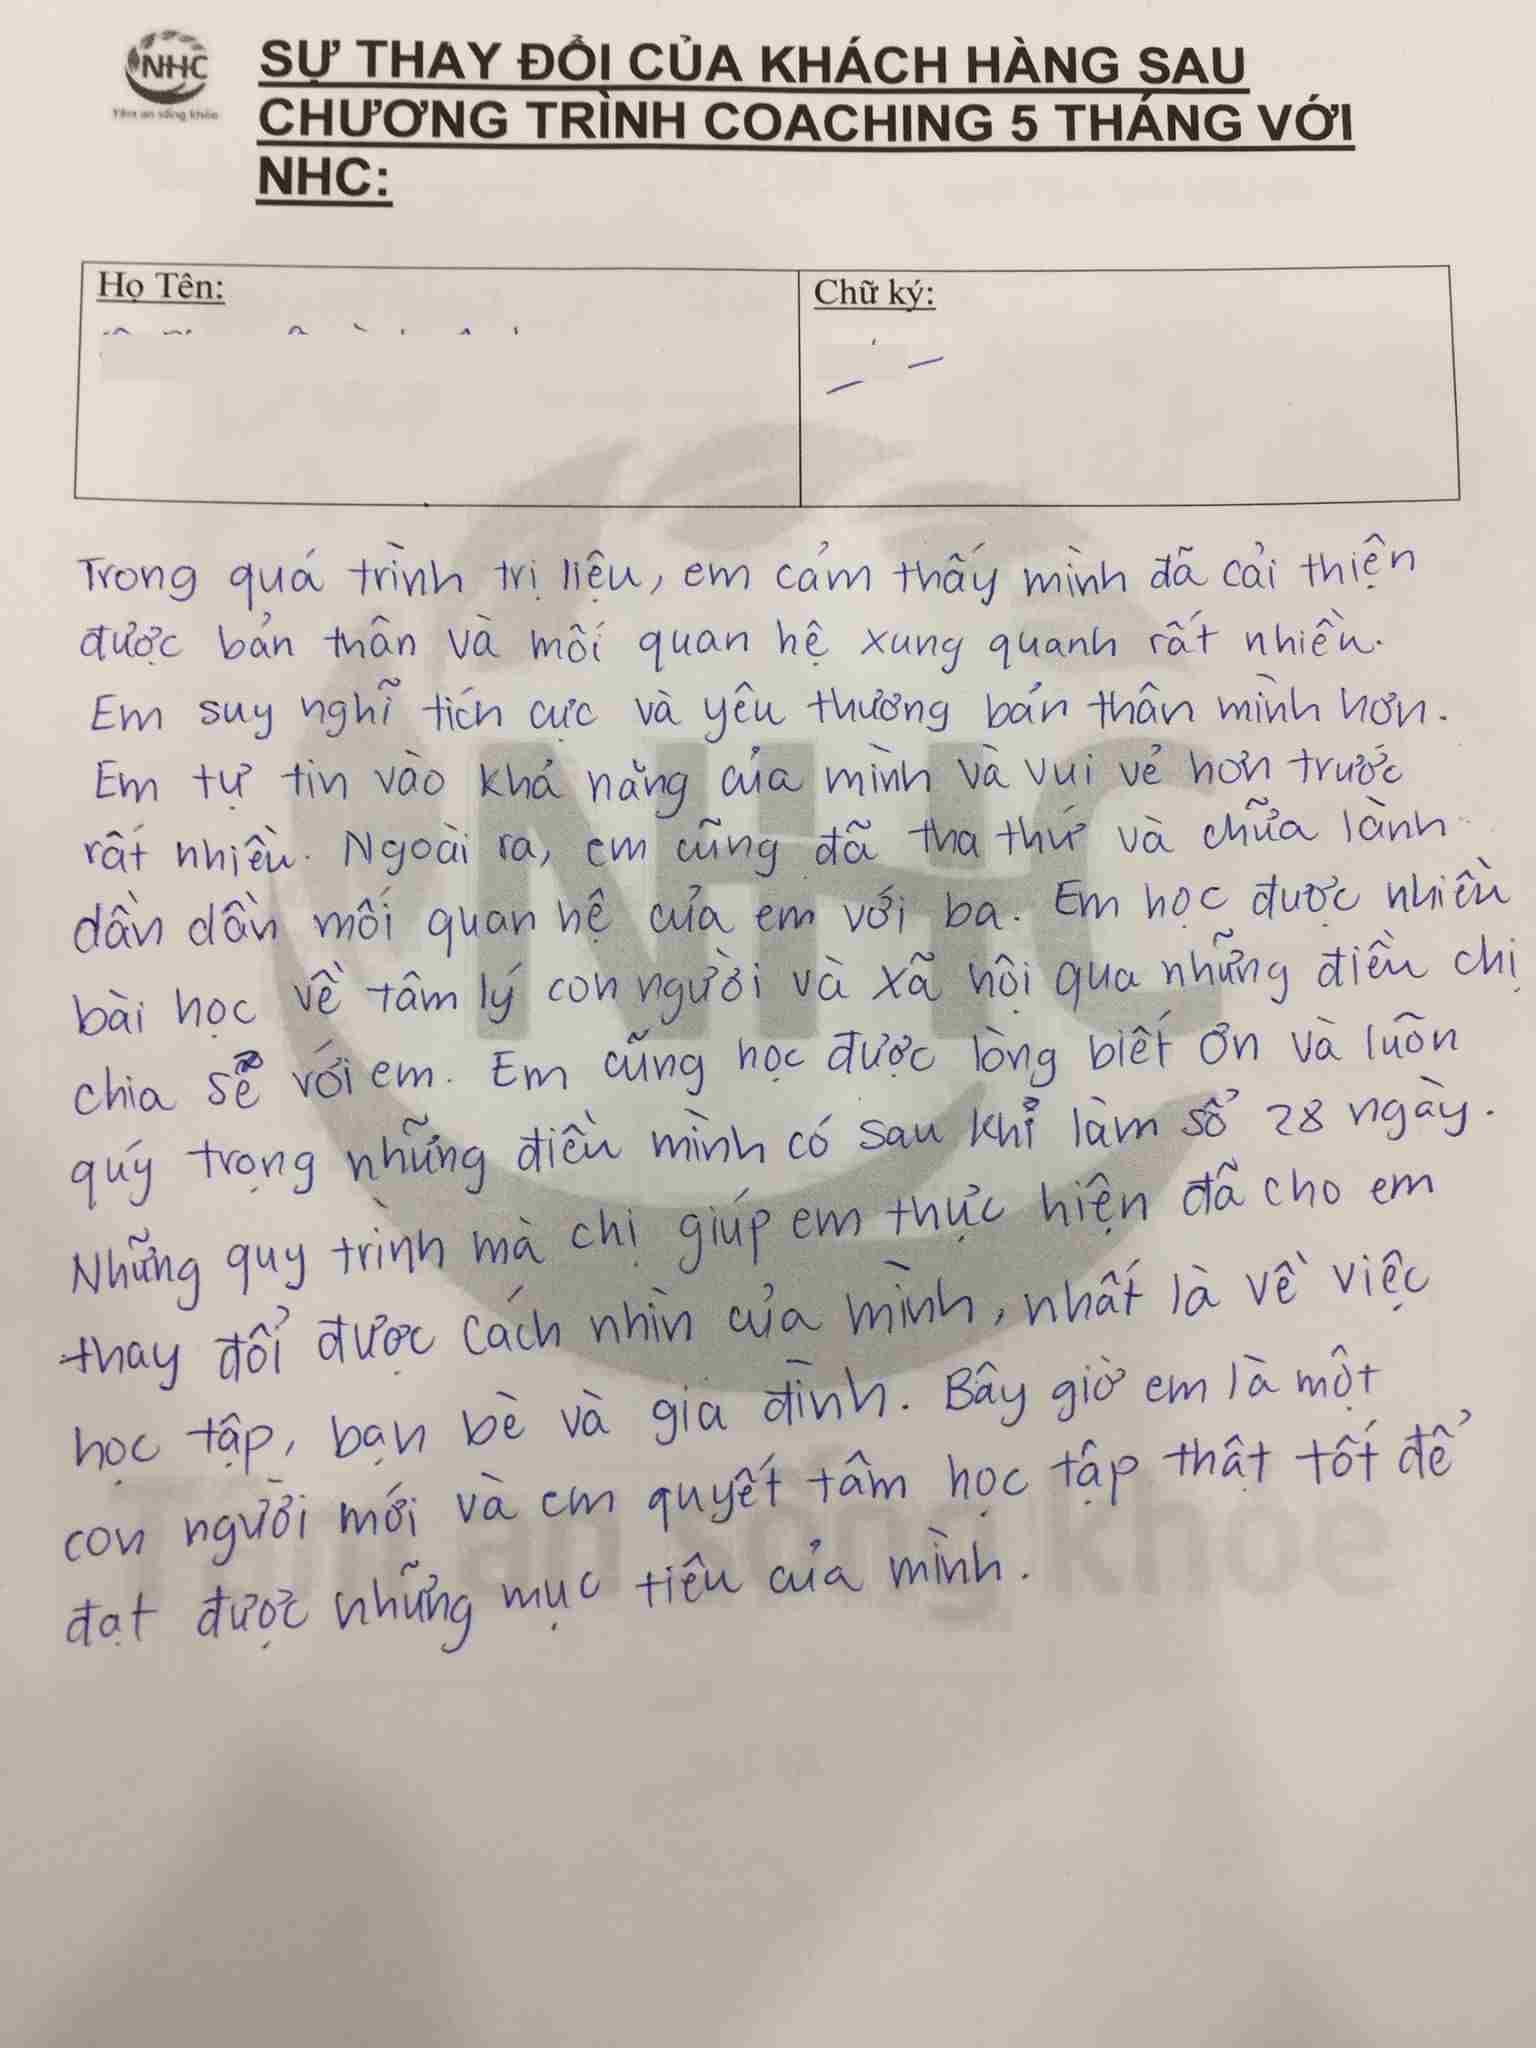 NHC
Tâm an sống khỏe
SỰ THAY ĐỔI CỦA KHÁCH HÀNG SAU
CHƯƠNG TRÌNH COACHING 5 THÁNG VỚI
NHC:
Họ Tên:
Chữ ký:
Trong quá trình trị liệu, em cảm thấy mình đã cải thiện
được bản thân và mối quan hệ xung quanh rất nhiều.
Em suy nghĩ tích cực và yêu thương bản thân mình hơn.
Em tự tin vào khả năng của mình và vui vẻ hơn trước
rất nhiều. Ngoài ra, em cũng đã tha thứ và chữa lành
dần dần mối quan hệ của em với ba. Em học được nhiều
bài học về tâm lý con người và xã hội qua những điều chị
chia sẽ với em. Em cũng học được lòng biết ơn và luôn
quý trọng những điều mình có sau khi làm sổ 28 ngày.
Những quy trình mà chị giúp em thực hiện đã cho em
thay đổi được cách nhìn của mình, nhất là về việc
học tập, bạn bè và gia đình. Bây giờ em là một
con người mới và em quyết tâm học tập thật tốt để
đạt được những mục tiêu của mình.
NHC
Tâm an sống khỏe